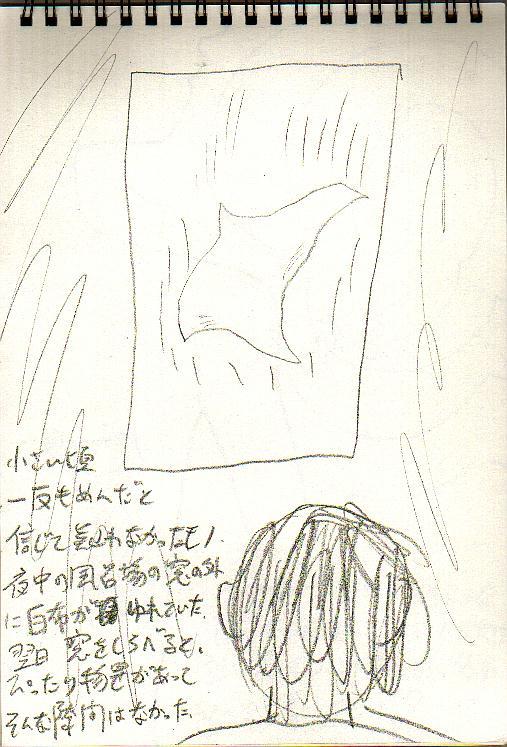 小さい頃
一反もめんだと
信じて疑われなかったモノ.
夜中の風呂場の窓の外
に白布が ゆれていた.
翌日 窓をしらべると、
ぴったり物置があって
そんな隙間はなかった.